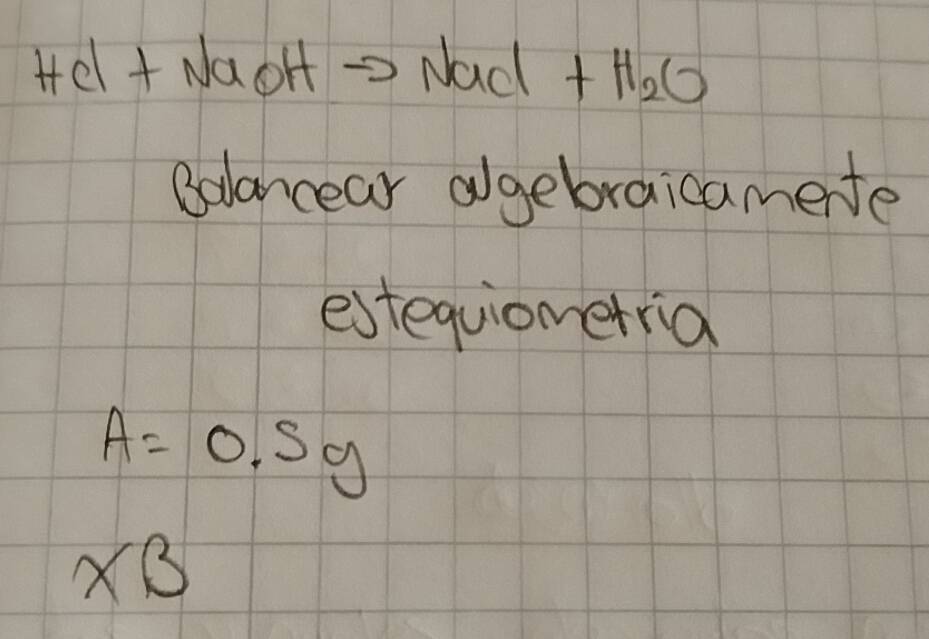 HCl + NaOH → NaCl + H₂O
Balancear algebraicamente
estequiometria
A= 0.5g
XB